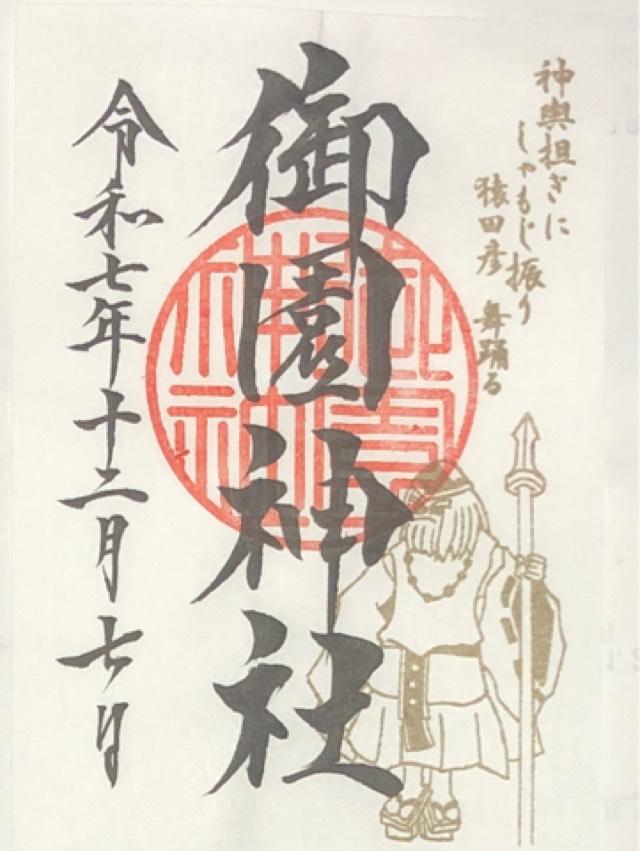 神輿担ぎに
しゃもじ振り
猿田彦 舞踊る
御園神社
令和七年十二月七日